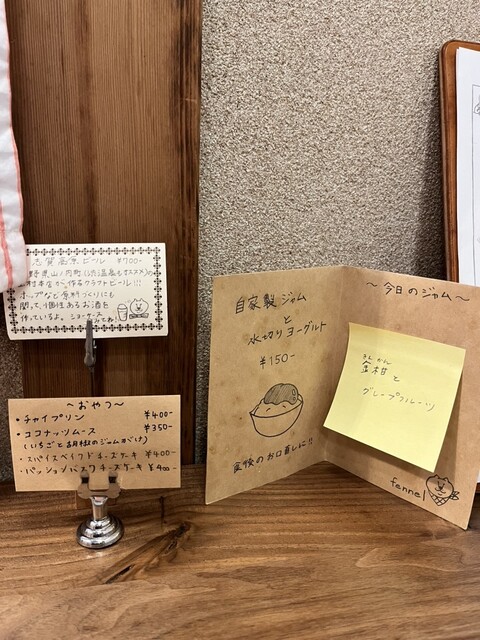 志賀高原ビール ¥700-
野県山ノ内町(渋温泉もオススメ)の
村本店が作るクラフトビール!!!
ホップなど原料づくりにも
関って、個性あるお酒を
作っているよ。ショーケース
みてね!
〜おやつ〜
・チャイプリン ¥400-
・ココナッツムース ¥350-
(いちごと胡椒のジャムがけ)
・スパイスベイクドチーズケーキ ¥400-
・パッションバスクチーズケーキ ¥400-
自家製ジャム
と
水切りヨーグルト
¥150-
食後のお口直しに!!
〜今日のジャム〜
きんかん
金柑 と
グレープフルーツ
fennel